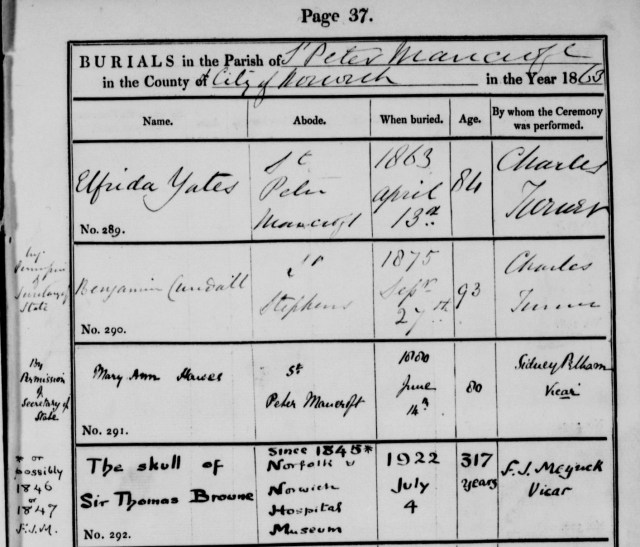 Page 37.
BURIALS in the Parish of St Peter Mancroft
in the County of City of Norwich in the Year 1863
Name. Abode. When buried. Age. By whom the Ceremony was performed.
Elfrida Yates
St
Peter
Mancroft
1863
April
13th
84
Charles
Turner
No. 289.
by
Permission
of
Secretary of
State
Benjamin Cundall
St
Stephens
1875
Sepr
27th
93
Charles
Turner
No. 290.
By
Permission
of
Secretary of
State
Mary Ann Hawes
St
Peter Mancroft
1880
June
14th
80
Sidney Pelham
Vicar
No. 291.
* or
possibly
1846
or
1847
F.J.M.
The skull of
Sir Thomas Browne
since 1845*
Norfolk &
Norwich
Hospital
Museum
1922
July
4
317
years
F. J. Meyrick
Vicar
No. 292.